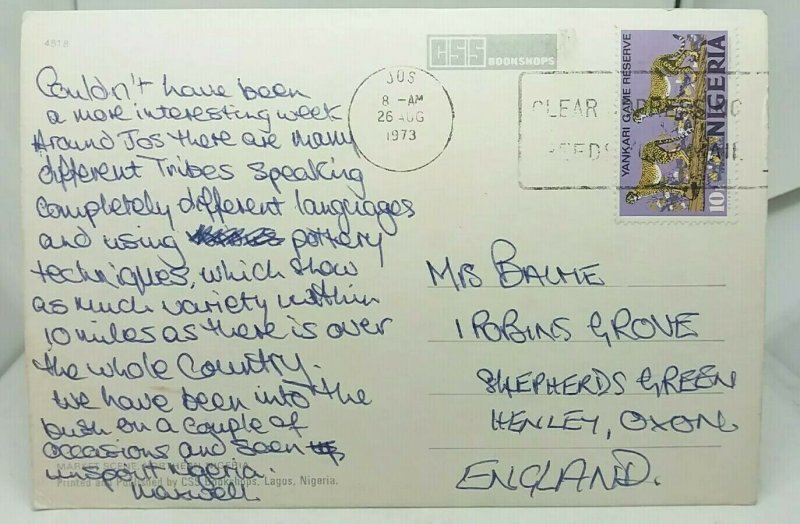 4818
CSS BOOKSHOPS
JOS
8 - AM
26 AUG
1973
CLEAR
YANKARI GAME RESERVE
NIGERIA
10
Couldn't have been
a more interesting week
Around Jos there are many
different Tribes speaking
completely different languages
and using pottery
techniques, which show
as much variety within
10 miles as there is over
the whole Country.
We have been into the
bush on a couple of
occasions and seen
unspoilt Nigeria.
Maxwell
MRS BALME
1 ROBINS GROVE
SHEPHERDS GREEN
HENLEY, OXON
ENGLAND.
MARKET SCENE, NORTHERN NIGERIA
Printed and Published by CSS Bookshops, Lagos, Nigeria.